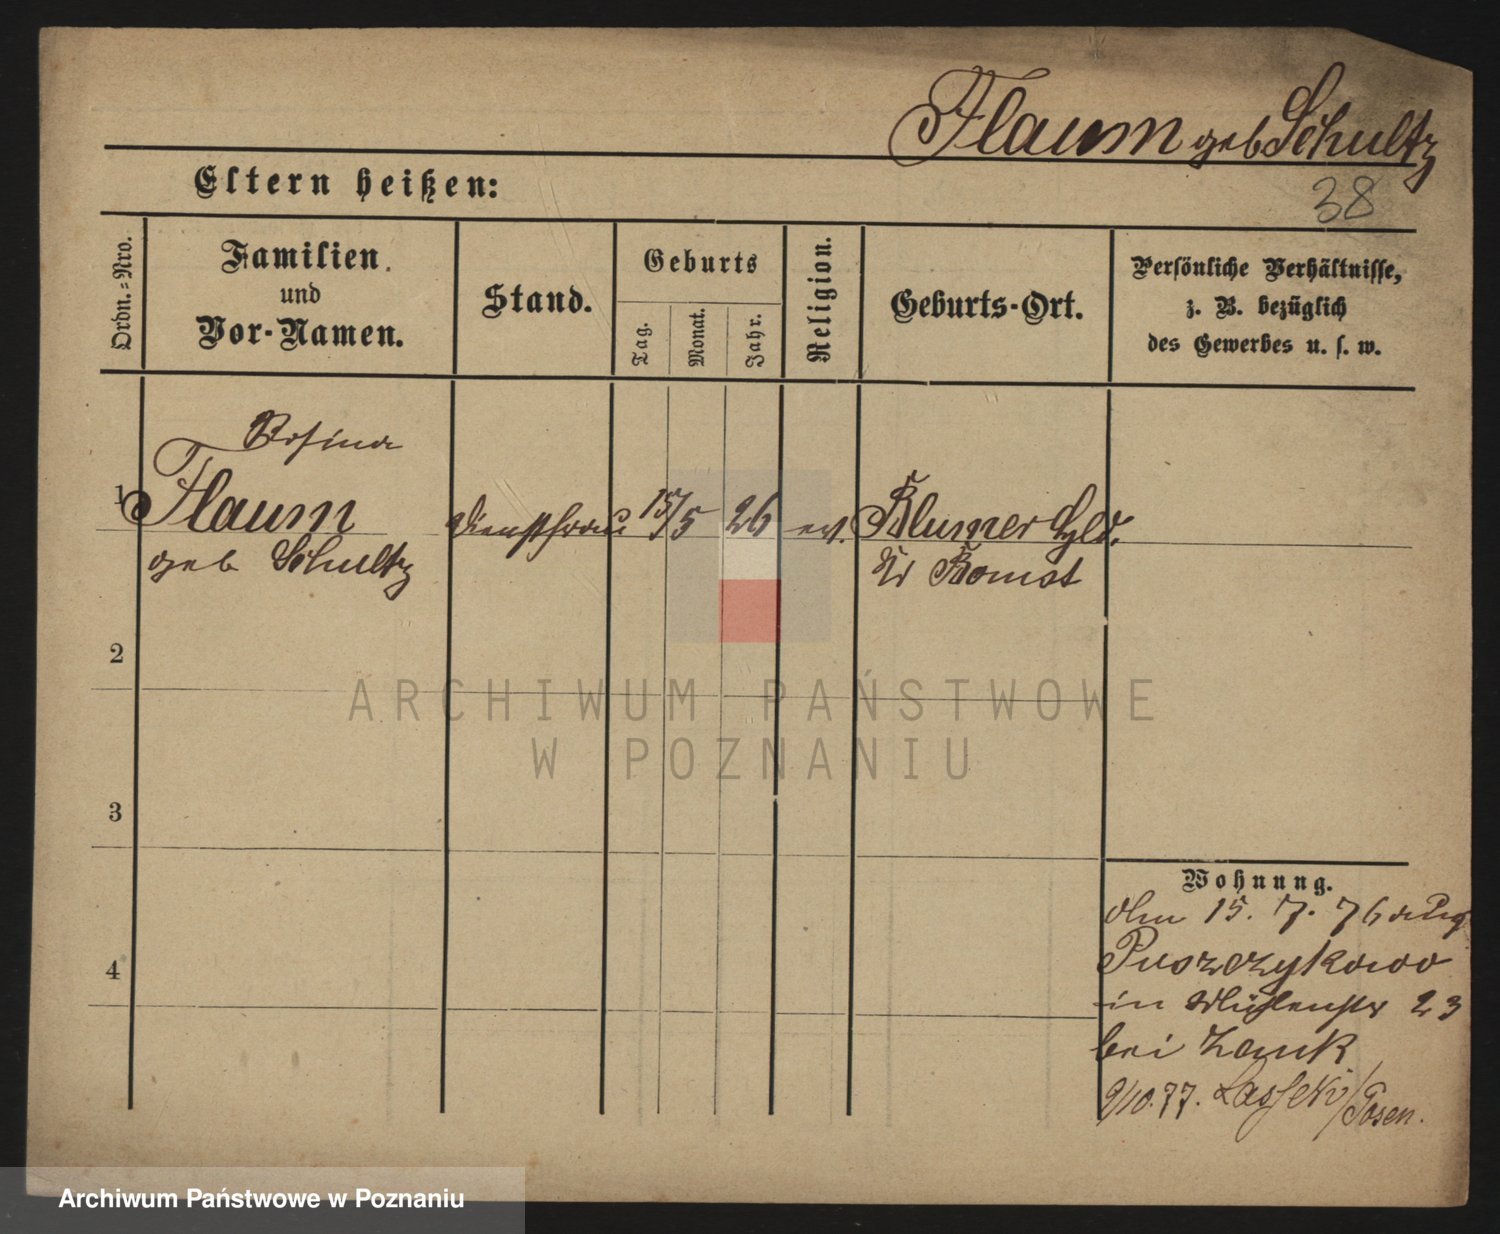 Flaum geb Schultz
Eltern heißen:
38
Ordn.-Nro.
Familien
und
Vor-Namen.
Stand.
Geburts
Tag.
Monat.
Jahr.
Religion.
Geburts-Ort.
Persönliche Verhältnisse,
z. B. bezüglich
des Gewerbes u. s. w.
Rosina
1 Flaum Dienstfrau 15/5 26 ev. Blumer Hld.
geb Schultz Kr Bomst
2
3
4
ARCHIWUM PAŃSTWOWE
W POZNANIU
Wohnung.
15. 7. 76
Puszczykowo
in Mühlenstr 23
bei Zank
9/10.77. Lassek /Posen.
Archiwum Państwowe w Poznaniu